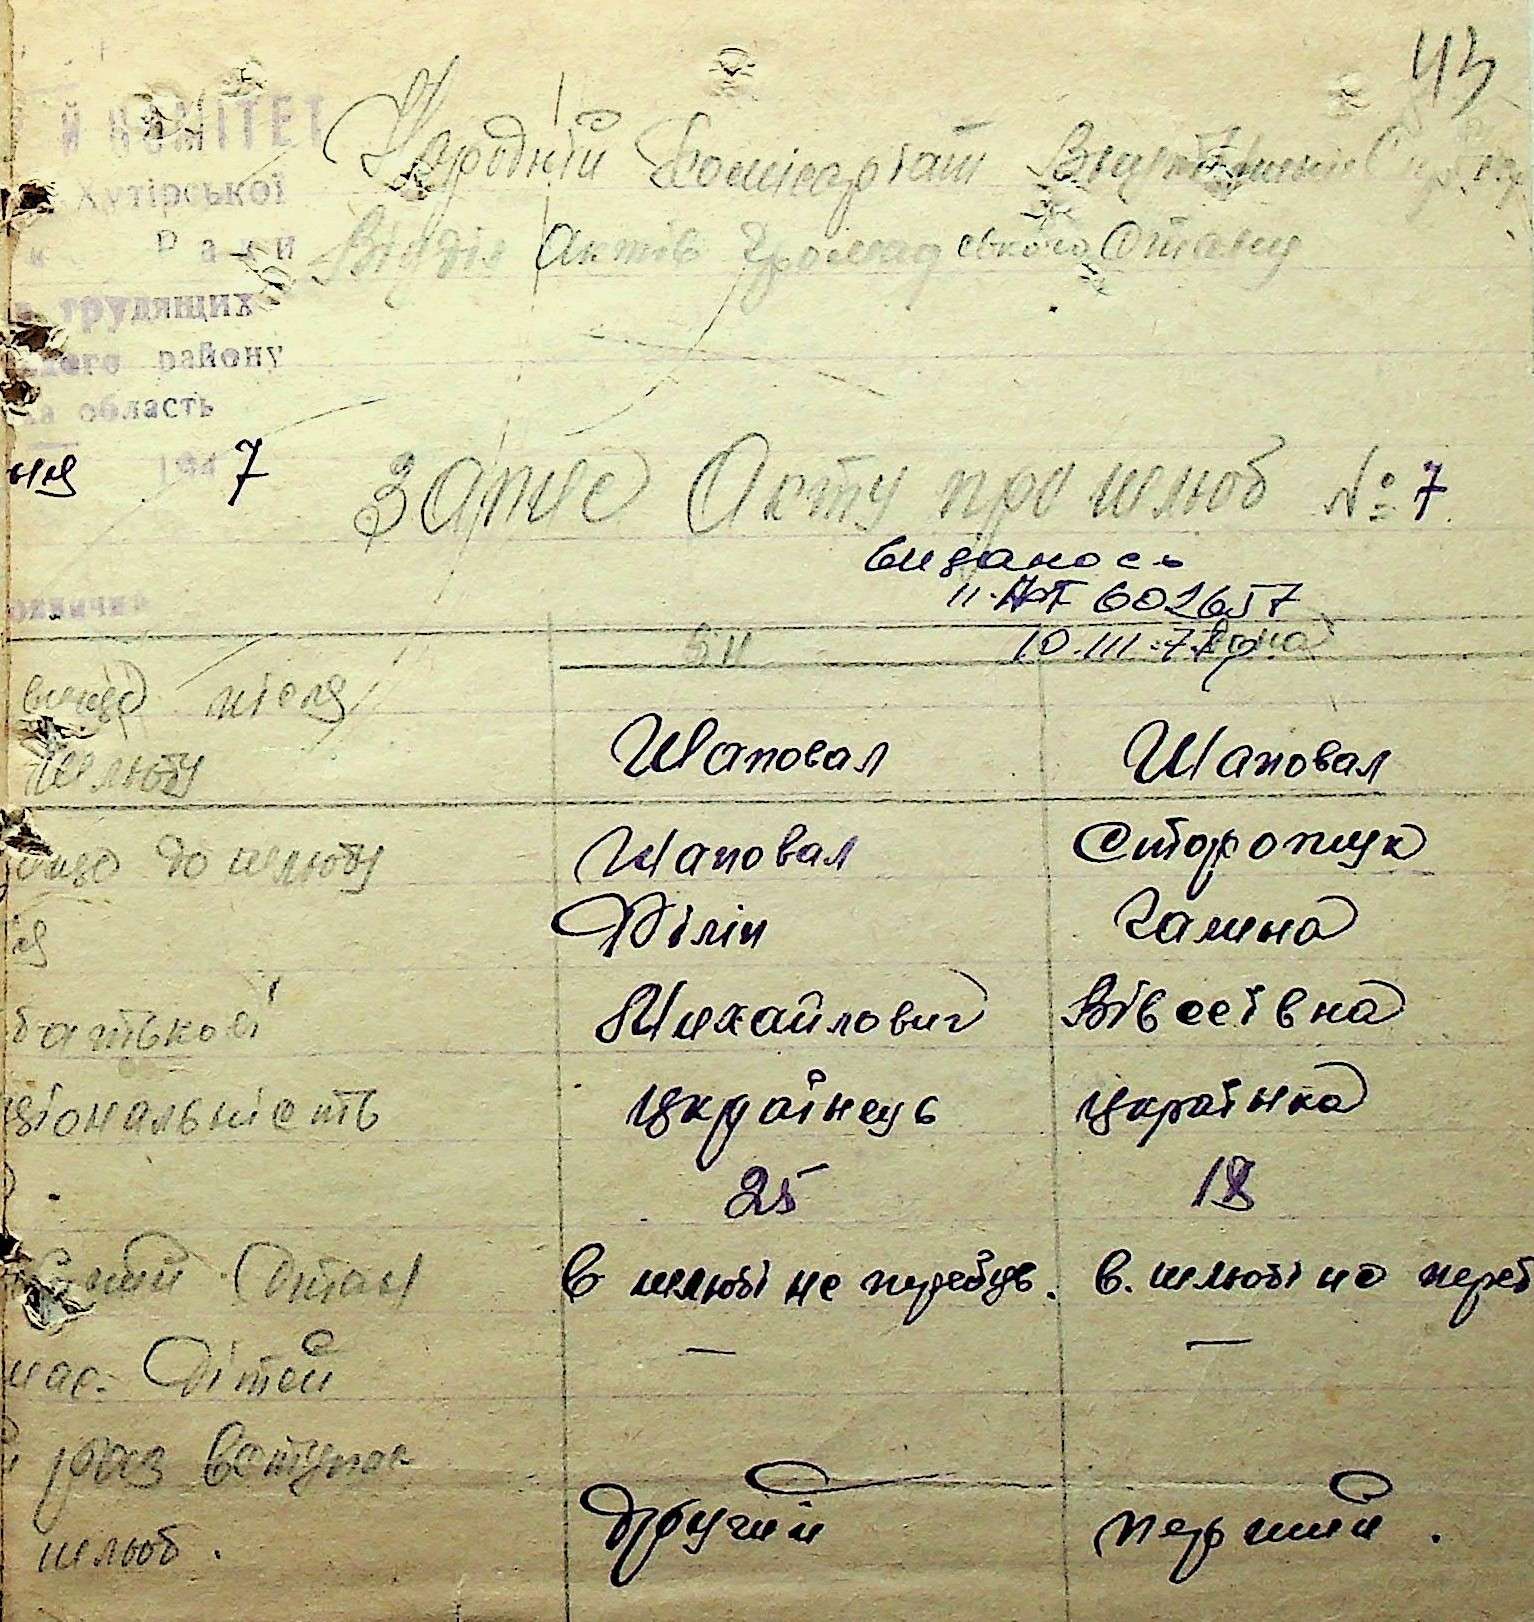 43
й КОМІТЕТ
Хутірської
Ради
трудящих
району
область
ня 1947
Народній Комісаріат Внутрішніх Справ
Відділ Актів Громадського Стану
Запис Акту про шлюб № 7
видано сь
10.III.7
Він Вона
після
шлюбу Шаповал Шаповал
до шлюбу Шаповал Сторожук
Філіп Галина
батькові Михайлович Вівсеївна
ціональність українець українка
25 18
Стан в шлюбі не перебув. в. шлюбі не переб
Дітей — —
раз вступає
шлюб. другий перший.